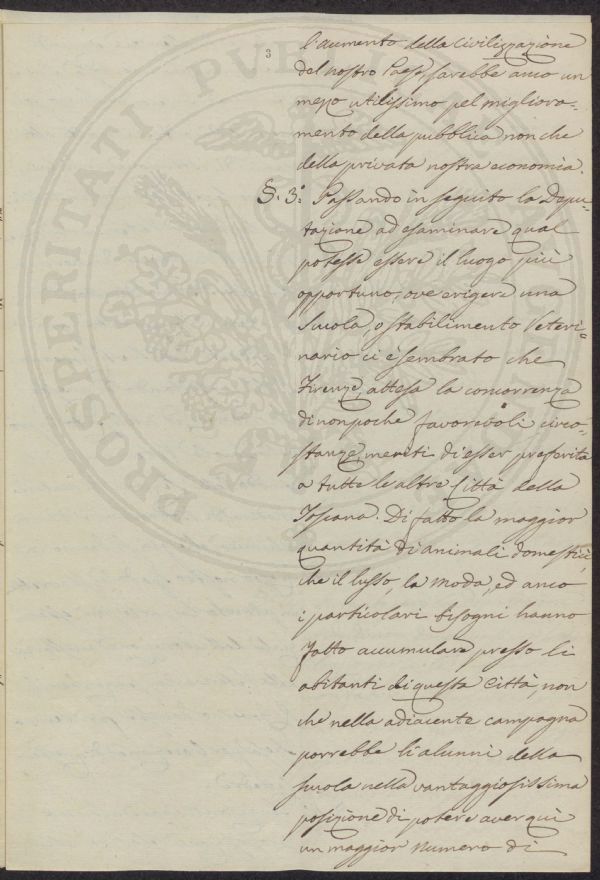 3
l'aumento della Civilizzazione
del nostro Paese sarebbe anco un
mezo utilissimo pel migliora=
mento della pubblica non che
della privata nostra economia.
§. 3.° Passando in seguito la Depu=
tazione ad esaminare qual
potesse essere il luogo più
opportuno, ove erigere una
Scuola, o stabilimento Veteri=
nario ci è sembrato che
Firenze, attesa la concorrenza
di non poche favorevoli circo=
stanze, meriti di esser preferita
a tutte le altre Città della
Toscana. Di fatto la maggior
quantità di animali domestici,
che il lusso, la moda, ed anco
i particolari bisogni hanno
fatto accumulare presso li
abitanti di questa Città, non
che nella adiacente campagna
porrebbe li alunni della
scuola nella vantaggiosissima
posizione di potere aver quì
un maggior numero di
PROSPERITATI PUBLICAE